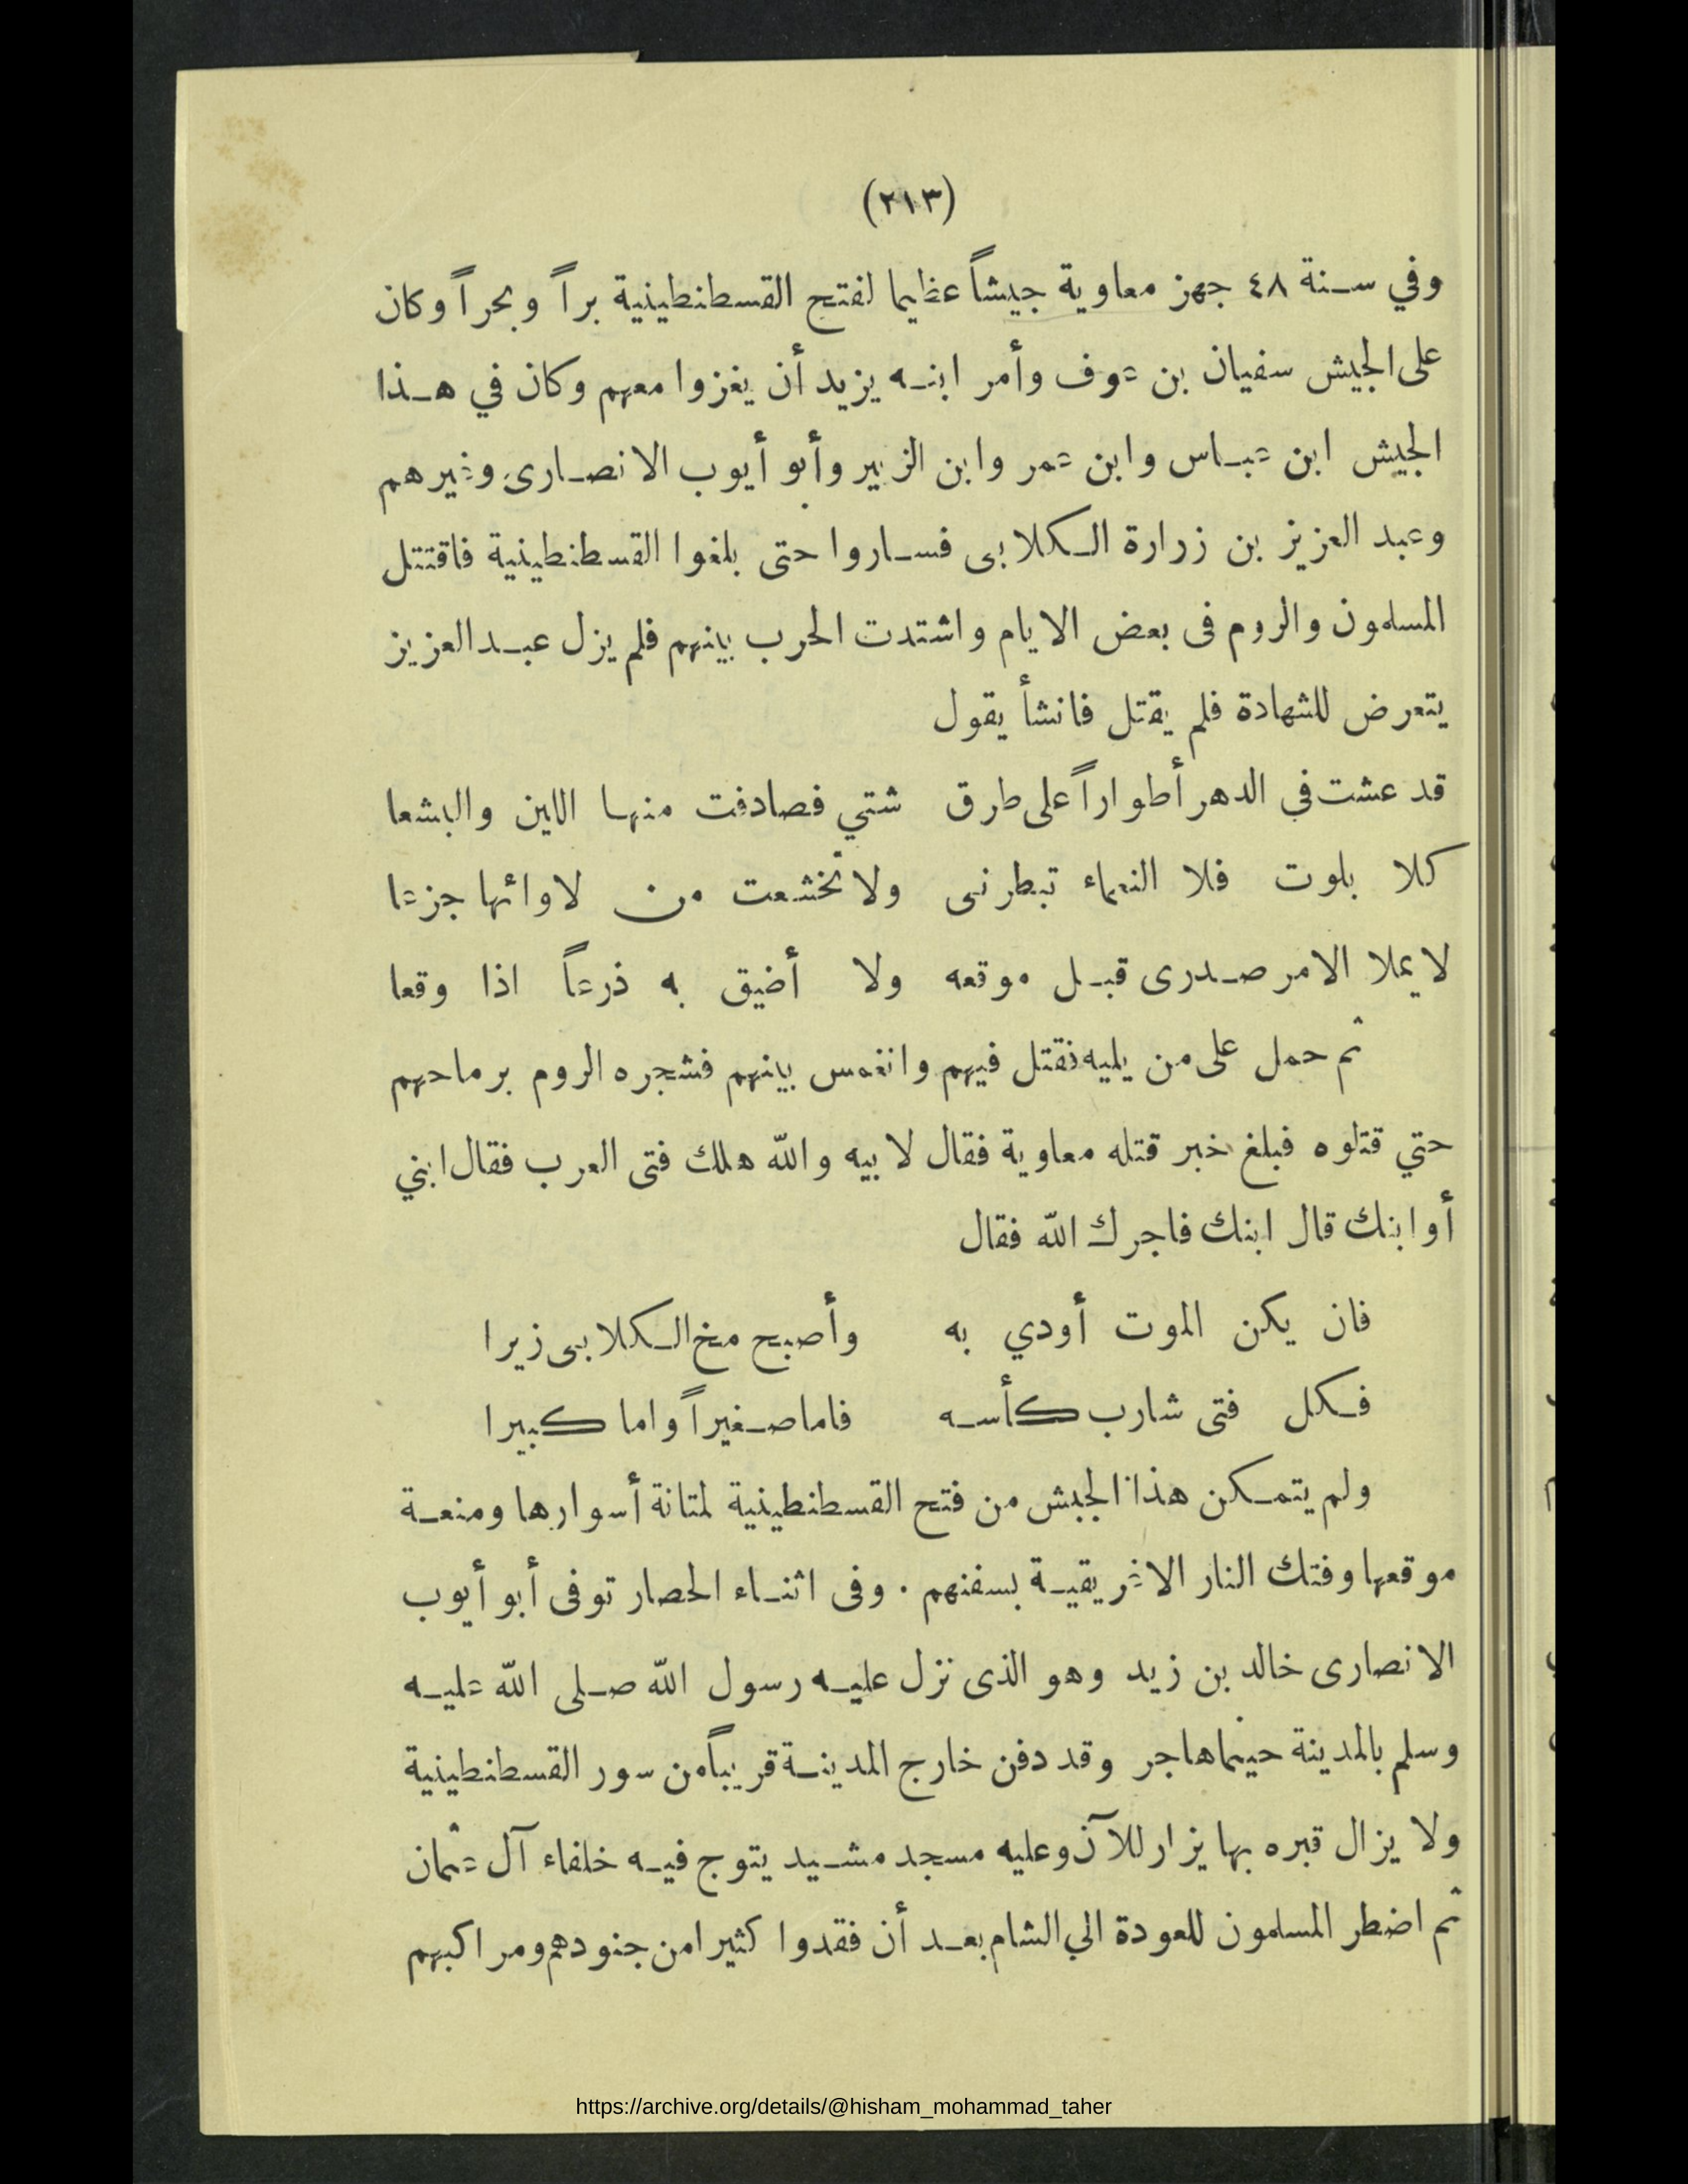 (٢١٣)
وفي سنة ٤٨ جهز معاوية جيشاً عظيما لفتح القسطنطينية براً وبحراً وكان
على الجيش سفيان بن عوف وأمر ابنه يزيد أن يغزوا معهم وكان في هذا
الجيش ابن عباس وابن عمر وابن الزبير وأبو أيوب الانصارى وغيرهم
وعبد العزيز بن زرارة الكلابى فساروا حتى بلغوا القسطنطينية فاقتتل
المسلمون والروم فى بعض الايام واشتدت الحرب بينهم فلم يزل عبد العزيز
يتعرض للشهادة فلم يقتل فانشأ يقول
قد عشت في الدهر أطواراً على طرق شتي فصادفت منها اللين والبشعا
كلا بلوت فلا النعماء تبطرنى ولا تخشعت من لاوائها جزعا
لا يملا الامر صدرى قبل موقعه ولا أضيق به ذرعاً اذا وقعا
ثم حمل على من يليه فقتل فيهم وانغمس بينهم فشجره الروم برماحهم
حتي قتلوه فبلغ خبر قتله معاوية فقال لابيه والله هلك فتى العرب فقال ابني
أو ابنك قال ابنك فاجرك الله فقال
فان يكن الموت أودي به وأصبح مخ الكلابى زيرا
فكل فتى شارب كأسه فاما صغيراً واما كبيرا
ولم يتمكن هذا الجيش من فتح القسطنطينية لمتانة أسوارها ومنعة
موقعها وفتك النار الاغريقية بسفنهم . وفى اثناء الحصار توفى أبو أيوب
الانصارى خالد بن زيد وهو الذى نزل عليه رسول الله صلى الله عليه
وسلم بالمدينة حينما هاجر وقد دفن خارج المدينة قريباً من سور القسطنطينية
ولا يزال قبره بها يزار للآن وعليه مسجد مشيد يتوج فيه خلفاء آل عثمان
ثم اضطر المسلمون للعودة الي الشام بعد أن فقدوا كثيرا من جنودهم ومراكبهم
https://archive.org/details/@hisham_mohammad_taher